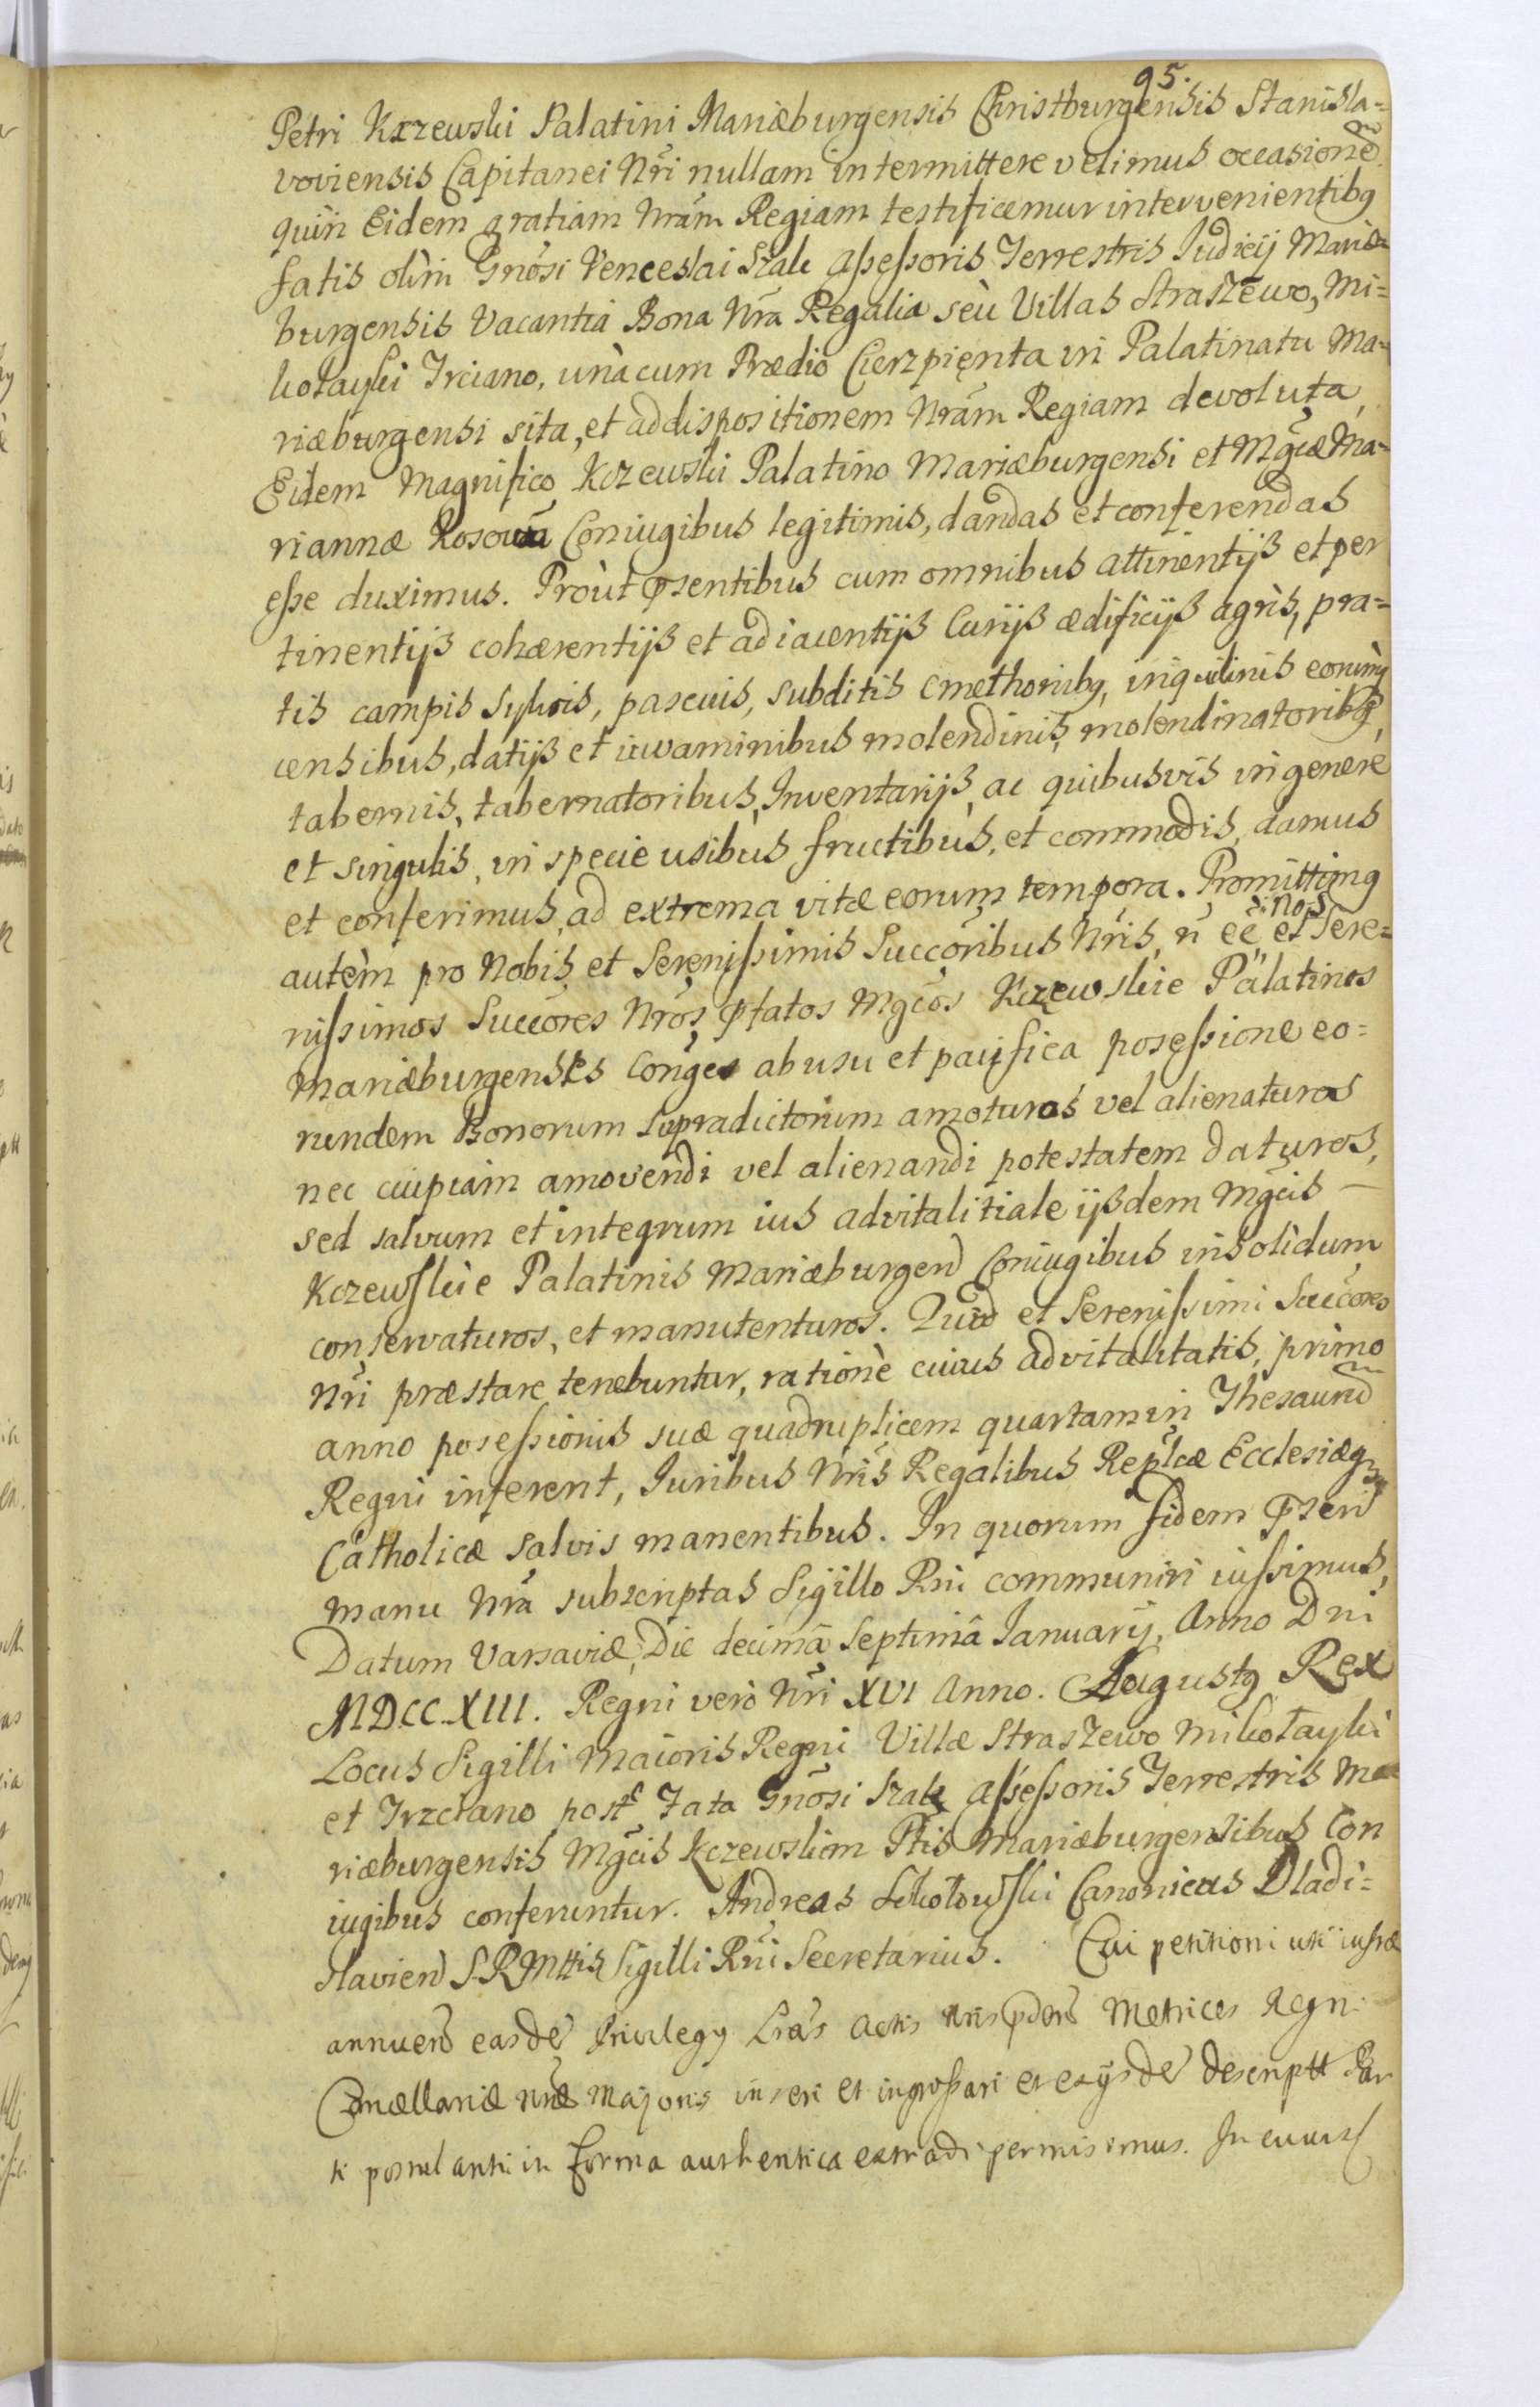 95.
Petri Kczewski Palatini Mariæburgensis Christburgensis Stanisla=
voviensis Capitanei Nr̃i nullam intermittere velimus occasionẽ
quin Eidem gratiam Nrãm Regiam testificemur intervenientibq
fatis olim Gnõsi Venceslai Szalc Assessoris Terrestris Judicij Mariæ=
burgensis Vacantia Bona Nrã Regalia seù Villas Straszewo, Mi=
kołayki Trciano, unà cum Prædio Cierzpięnta in Palatinatu Ma=
riæburgensi sita, et ad dispositionem Nrãm Regiam devoluta,
Eidem Magnifico Kczewski Palatino Mariæburgensi et Mgcæ Ma=
riannæ Coniugibus legitimis, dandas et conferendas
esse duximus. Proùt pñsentibus cum omnibus attinentijs et per
tinentijs cohærentijs et adiacentijs Curijs ædificijs agris, pra=
tis campis sylvis, pascuis, subditis cmethonibq, inquilinis eorumq
censibus, datijs et iuvaminibus molendinis, molendinatoribq,
tabernis, tabernatoribus, Inventarijs, ac quibusvis in genere
et singulis, in specie usibus fructibus, et commodis, damus
et conferimus, ad extrema vitæ eorum tempora. Promittimq
autèm pro Nobis et Serenissimis Succõribus Nris, ñ eẽ Nos et Sere=
nissimos Succõres Nrõs, ptatos Mgcõs Kczewskie Palatinos
Mariæburgenses Conges ab usu et pacifica posessione eo=
rundem Bonorum supradictorum amoturos vel alienaturos
nec cuipiam amovendi vel alienandi potestatem daturos,
sed salvum et integrum ius advitalitiale ijsdem Mgcis —
Kczewskie Palatinis Mariæburgen Coniugibus insolidum
conservaturos, et manutenturos. Quod et Serenissimi Succõres
Nr̃i præstare tenebuntur, ratione cuius advitalitatis, primo
anno posessionis suæ quadruplicem quartam in Thesaurũ
Regni inferent, Juribus Nris Regalibus Replcæ Ecclesiæq
Catholicæ salvis manentibus. In quorum fidem pñsen
manu Nrã subscriptas Sigillo Rni communiri iussimus,
Datum Varsaviæ, Die decimâ Septimâ Januarij, Anno Dni
MDCCXIII. Regni verò Nri XVI Anno. Augustq Rex
Locus Sigilli Maioris Regni Villæ Straszewo Mikołayki
et Trzciano post Fata Gnõsi Szalc Assessoris Terrestris Ma
riæburgensis Mgcis Kczewskim Ptis Mariæburgensibus Con
iugibus conferuntur. Andreas Sokołowski Canonicus Vladi=
slavien S. R. Mttis Sigilli Rni Secretarius. Cui petitioni uti iustæ
annuen easdẽ Privilegy Lras Actis Metrices Regni
Cancellariæ nræ Majoris inseri et ingrossari et ex ijsdẽ descriptt Par
ti postulanti in forma authentica extradi permisimus. In cuius